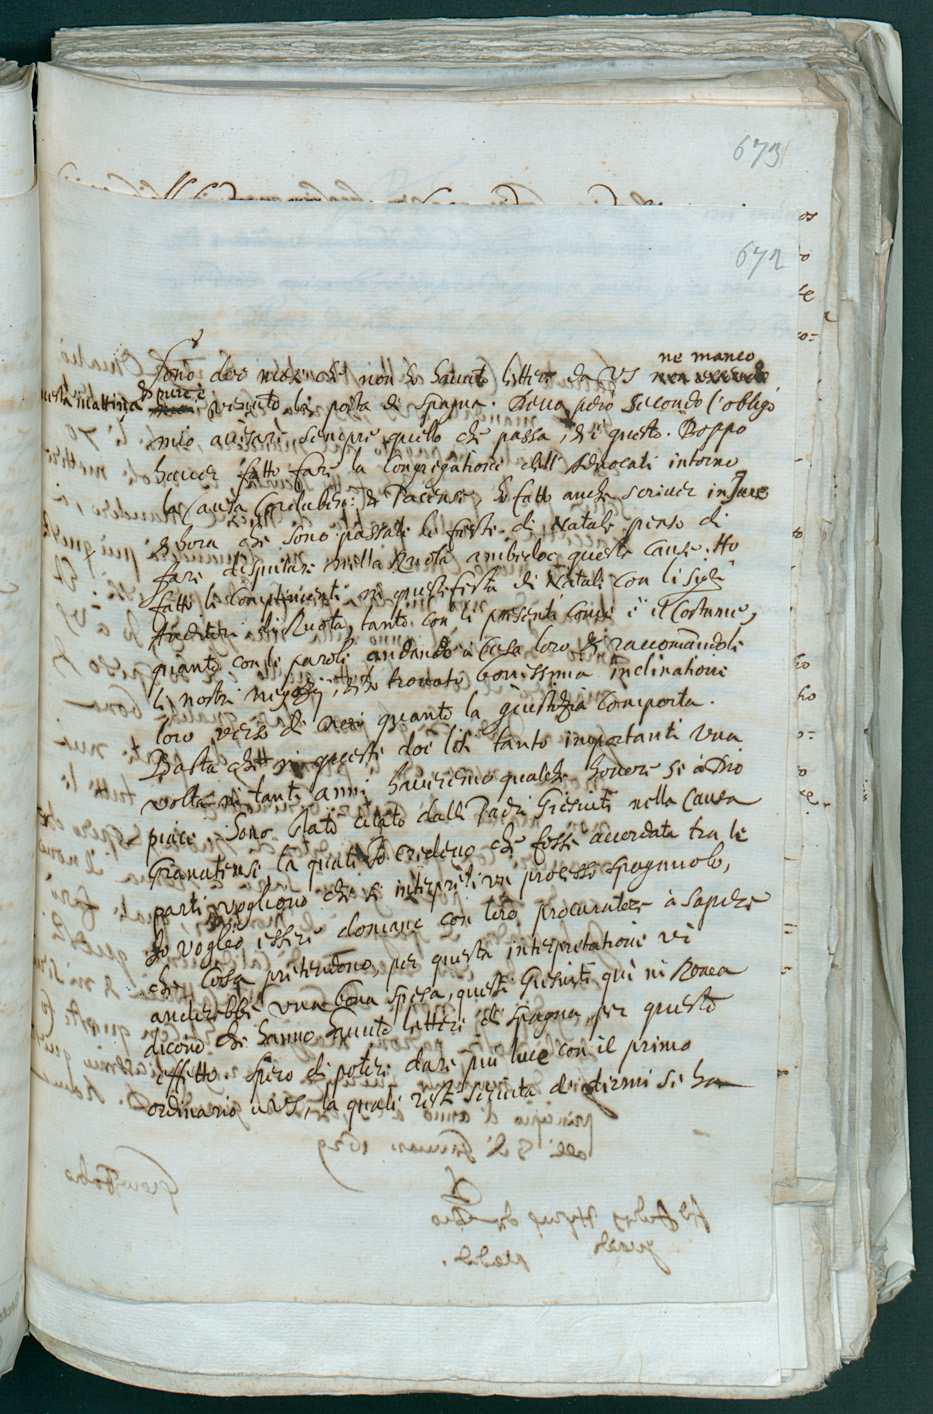 673
672
Sono doe mesi che non ho havuto lettere da VS ne manco
questa mattina & pure è venuto la posta di Spagna. Devo però secondo l'obligo
mio avisare sempre quello che passa, & è questo. Doppo
haver fatto fare la Congregatione dell' Advocati intorno
la Causa Cordubensi: & Pacensi, ho fatto anche scriver in Jure
& hora che sono passate le feste di Natale penso di
fare disputare nella Ruota ambedoe queste cause. Ho
fatto le complimenti in queste feste di Natale con li Sigri
Auditori di Ruota, tanto con li presenti come è il Costume,
quanto con le parole andando a Casa loro & raccomandoli
li nostri negozij, & ho trovato bonissima inclinatione
loro verso di noi quanto la giustizia comporta.
Basta che in queste doe liti tanto importanti una
volta in tanti anni haveremo qualche honore se a Dio
piace. Sono stato citato dalli Padri Giesuiti nella Causa
Granatensi la quale Io credevo che fosse accordata tra le
parti, vogliono che si interpreti un processo spagnuolo,
Io voglio essere domane con loro procuratore à sapere
che cosa pretendono, per questa interpretatione vi
anderebbe una bona spesa, questi Giesuiti qui in Roma
dicono che hanno havuto lettere di Spagna per questo
effetto. Spero di poter dare più luce con il primo
ordinario a VS, la quale resta servita de dirmi se ha